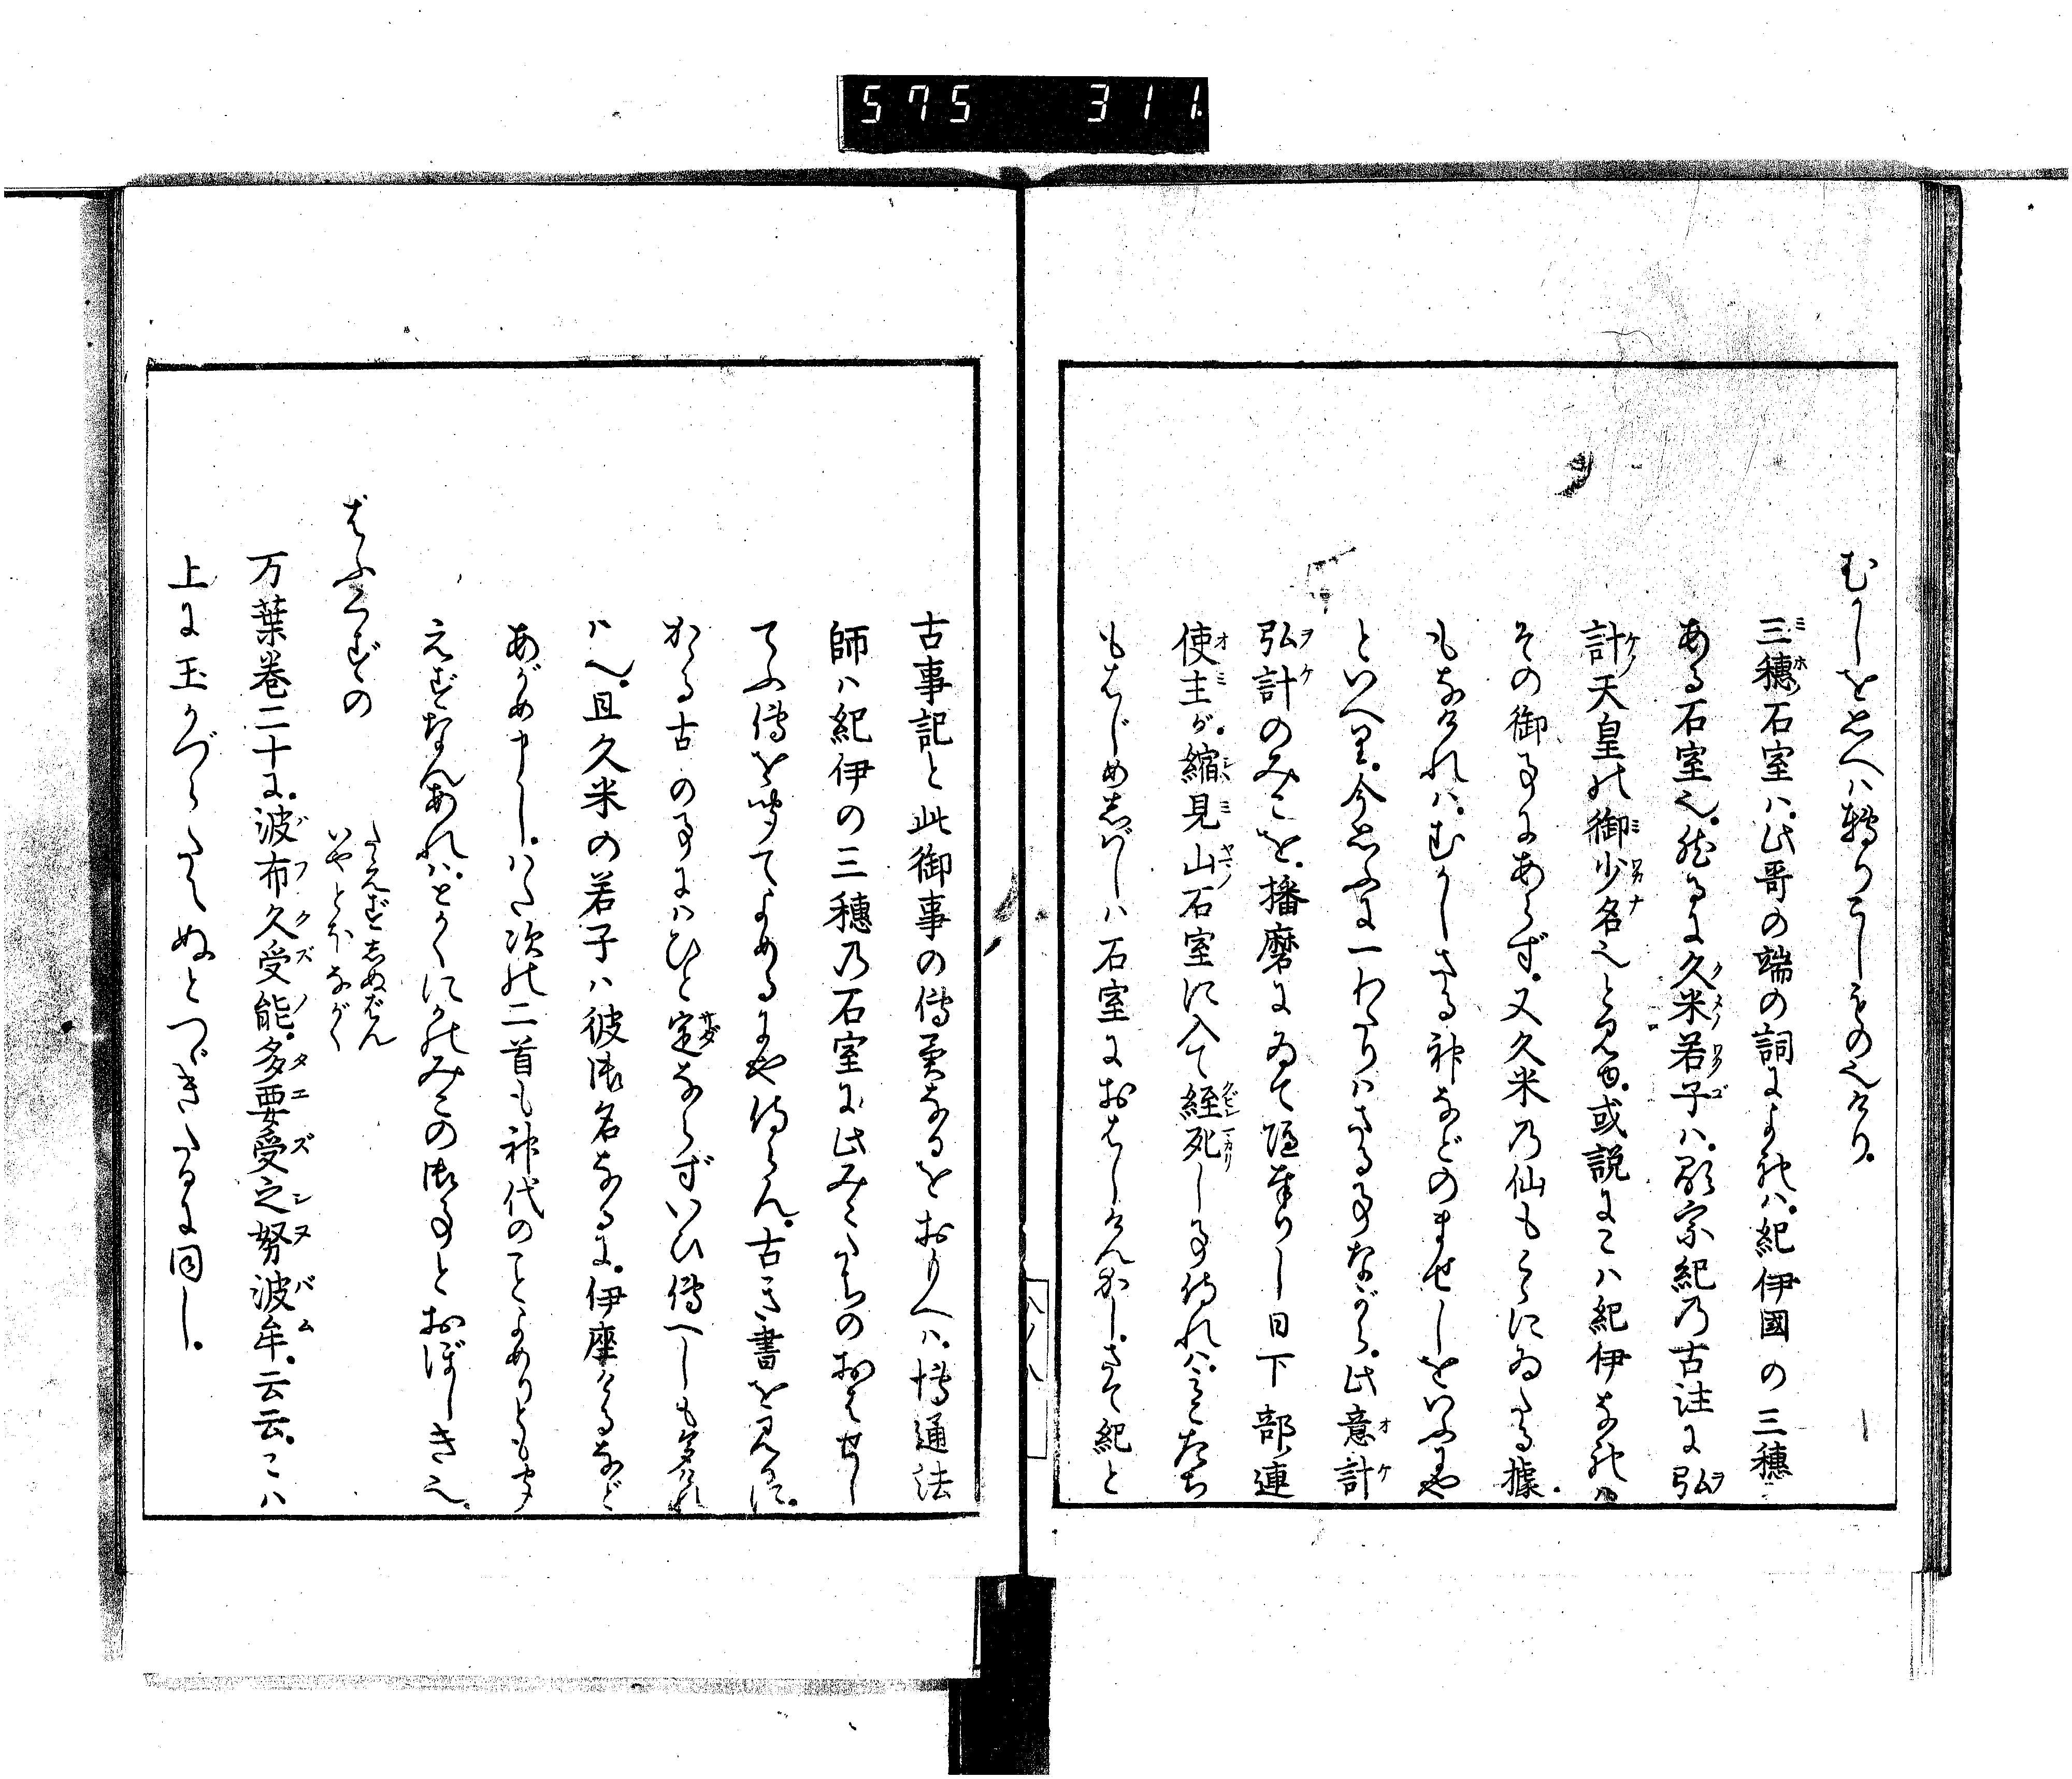 575 311
むかしをおもへハ轉りうしもの也けり。
三穗ノ石室ハ、此哥の端の詞によれハ、紀伊國の三穗に
ある石室也。然るに久米ノ若子ハ、顕宗紀乃古注に弘
計ノ天皇の御少名也と見ゆ。或説にこハ紀伊なれハ
その御事にあらず。又久米乃仙もこゝにゐたる據
もなけれハ、むかしさる神などのませしをいふにや
といへり。今おもふに一わたりハさる事ながら、此意計
弘計のみこを、播磨にゐて隠奉りし日下部ノ連
使主が、縮見山ノ石室に入て經死し事侍れハ、みこたち
もはじめしばしハ石室におはしけんかし。さて紀と
古事記と此御事の傳異なるをおもへハ、博通法
師ハ紀伊の三穗乃石室に此みこたちのおはせし
てふ傳を聞てよめるにや侍らん。古き書を見るに、
かゝる古の事にハひと定ならずいひ傳へしも多けれ
ハ也。且久米の若子ハ彼御名なるに、伊座けるなど
あがめ申し、ハた次の二首も神代のことよめりとも聞
えずなんあれハ、とかくにかのみこの御事とおぼしき也。
はふくずの
たえずしぬばん
いやとほながく
万葉巻二十に、波布久受能、多要受之努波牟、云云。こハ
上に玉かづらたえぬとつゞきたるに同し。